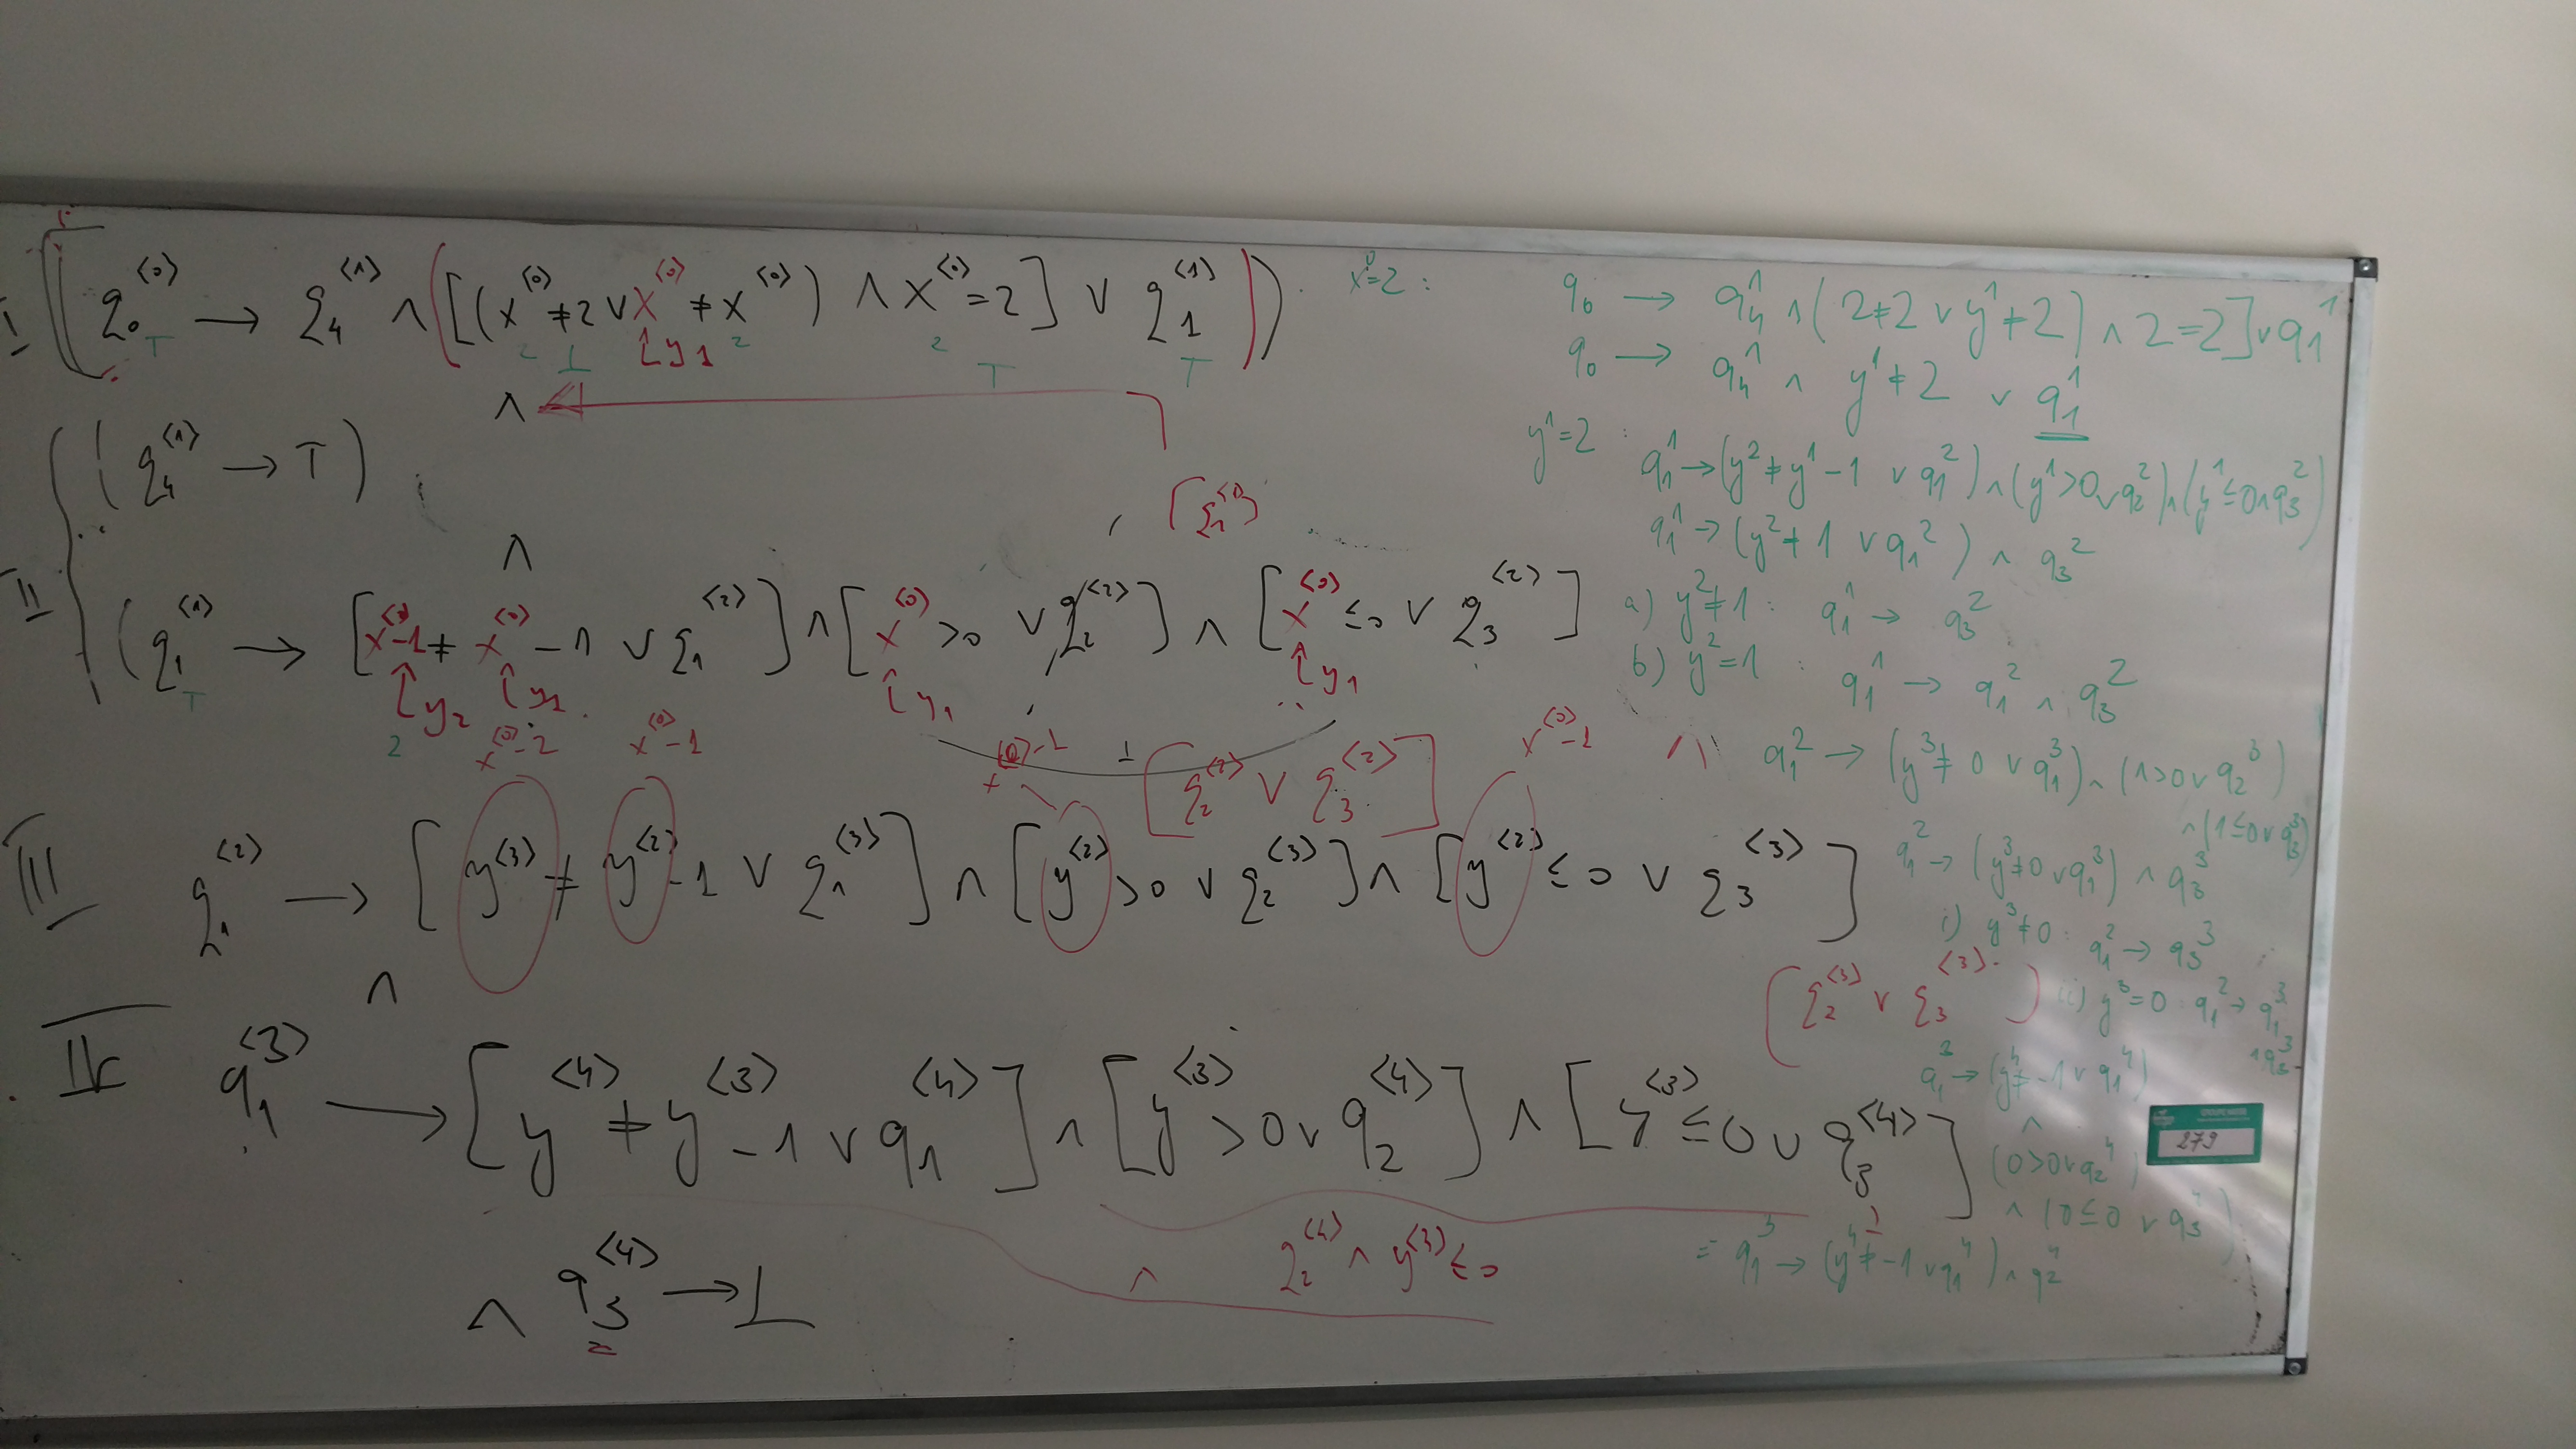 I ( q₀⟨0⟩ → q₄⟨1⟩ ∧ ([(x⟨0⟩ ≠ 2 ∨ x⟨0⟩ ≠ x⟨0⟩) ∧ x⟨0⟩ = 2] ∨ q₁⟨1⟩))
T 2 ⊥ y₁ 2 2 T T
∧
II ( q₄⟨1⟩ → T )
∧
( q₁⟨1⟩ → [x⟨0⟩-1 ≠ x⟨0⟩ - 1 ∨ q₁⟨2⟩] ∧ [x⟨0⟩ > 0 ∨ q₂⟨2⟩] ∧ [x⟨0⟩ ≤ 0 ∨ q₃⟨2⟩]
T y₂ y₁ y₁ y₁
2 x⟨0⟩-2 x⟨0⟩-1 x⟨0⟩-1 ⊥ [q₂⟨2⟩ ∨ q₃⟨2⟩] x⟨0⟩-1 ∧
III q₁⟨2⟩ → [y⟨3⟩ ≠ y⟨2⟩ - 1 ∨ q₁⟨3⟩] ∧ [y⟨2⟩ > 0 ∨ q₂⟨3⟩] ∧ [y⟨2⟩ ≤ 0 ∨ q₃⟨3⟩]
∧
(q₂⟨3⟩ ∨ q₃⟨3⟩)
q₁⟨3⟩ → [y⟨4⟩ ≠ y⟨3⟩ - 1 ∨ q₁⟨4⟩] ∧ [y⟨3⟩ > 0 ∨ q₂⟨4⟩] ∧ [y⟨3⟩ ≤ 0 ∨ q₃⟨4⟩]
∧ q₂⟨4⟩ ∧ y⟨3⟩ ≤ 0
∧ q₃⟨4⟩ → ⊥
x⁰=2 :
q₀ → q₄¹ ∧ (2≠2 ∨ y¹≠2) ∧ 2=2] ∨ q₁¹
q₀ → q₄¹ ∧ y¹≠2 ∨ q₁¹
y¹=2 : q₁¹ → (y²≠y¹-1 ∨ q₁²) ∧ (y¹>0 ∨ q₂²) ∧ (y¹≤0 ∧ q₃²)
q₁¹ → (y²≠1 ∨ q₁²) ∧ q₃²
a) y²≠1 : q₁¹ → q₃²
b) y²=1 : q₁¹ → q₁² ∧ q₃²
q₁² → (y³≠0 ∨ q₁³) ∧ (1>0 ∨ q₂³)
∧ (1≤0 ∨ q₃³)
q₁² → (y³≠0 ∨ q₁³) ∧ q₃³
i) y³≠0 : q₁² → q₃³
ii) y³=0 : q₁² → q₁³
∧ q₃³
q₁³ → (y⁴≠-1 ∨ q₁⁴)
∧
(0>0 ∨ q₂⁴)
∧ (0≤0 ∨ q₃⁴)
= q₁³ → (y⁴≠-1 ∨ q₁⁴) ∧ q₂⁴
279